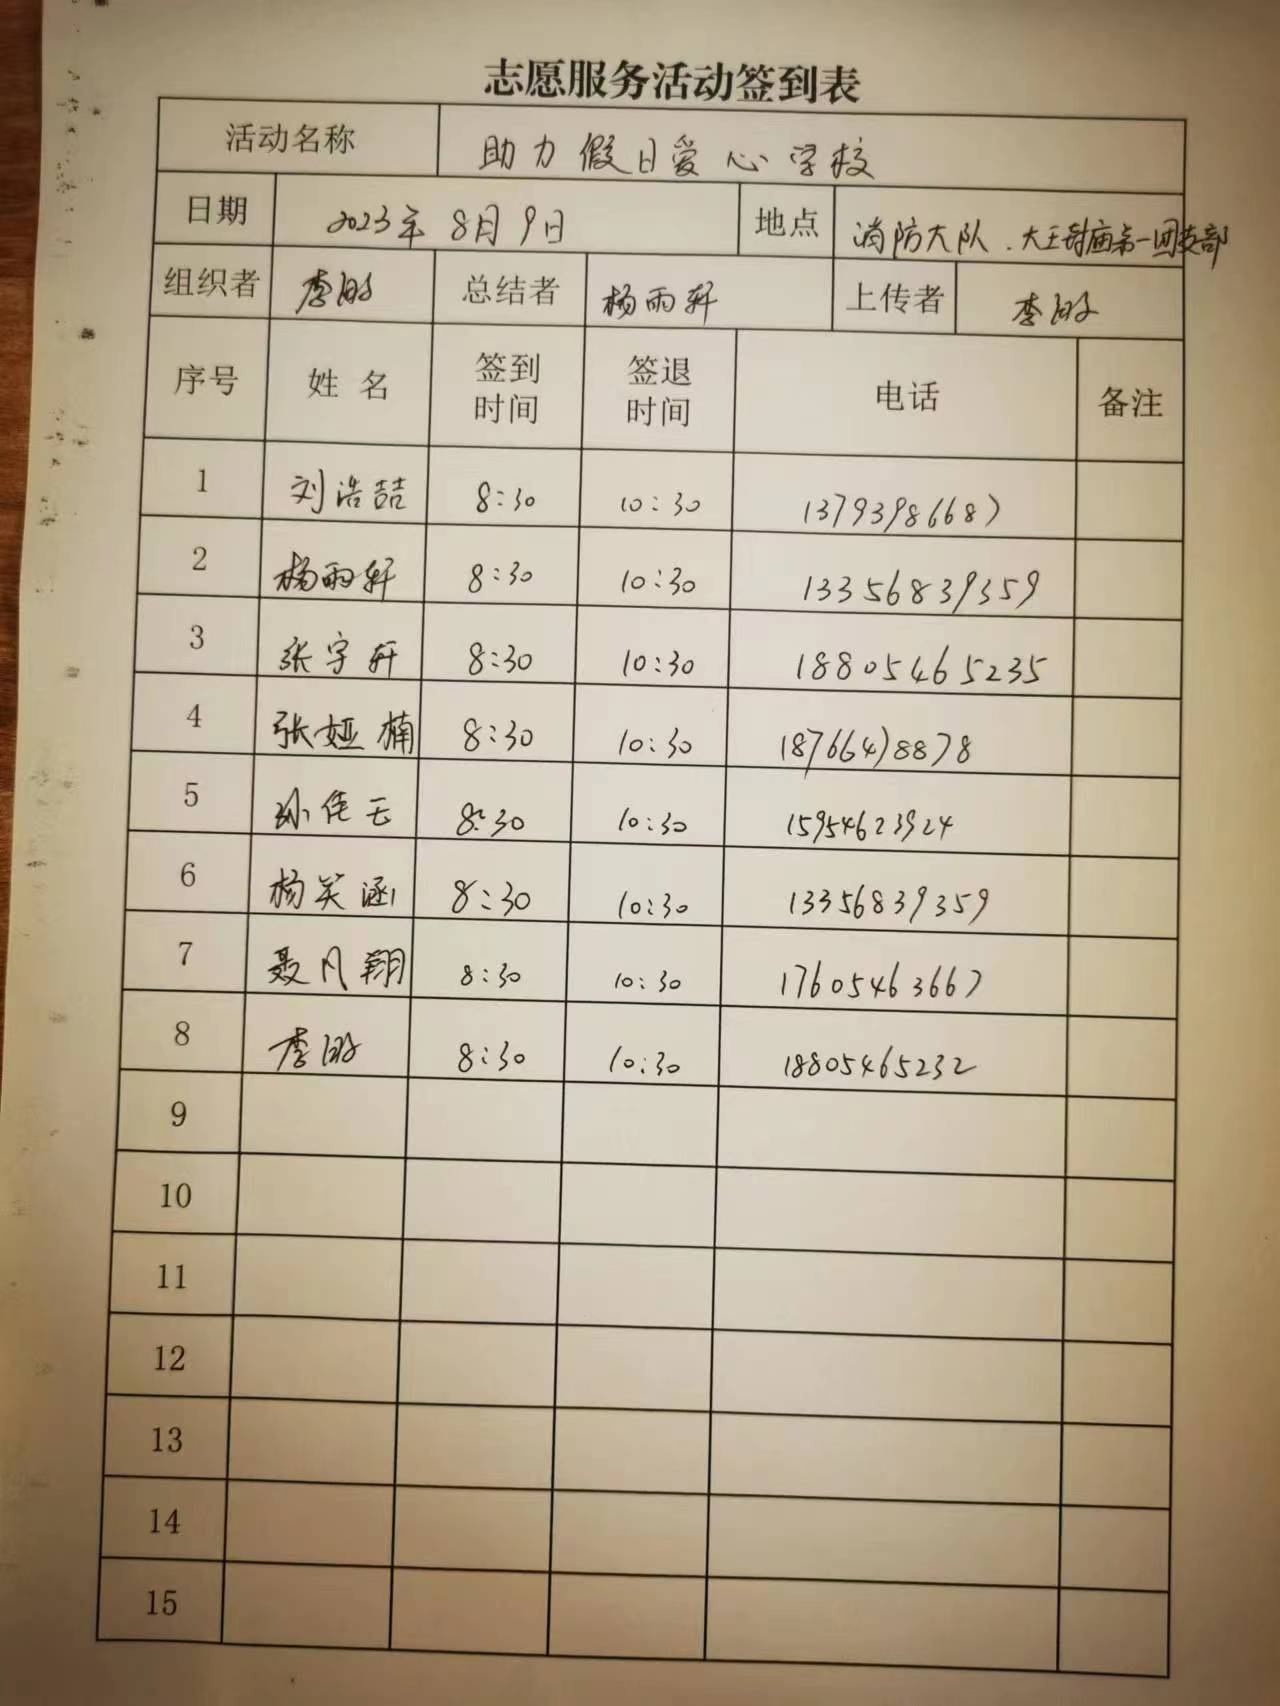 志愿服务活动签到表
活动名称 助力假日爱心学校
日期 2023年8月9日 地点 消防大队、大王封庙第一团支部
组织者 李盼 总结者 杨雨轩 上传者 李盼
序号 姓名 签到时间 签退时间 电话 备注
1 刘浩喆 8:30 10:30 13793986687
2 杨雨轩 8:30 10:30 13356839359
3 张宇轩 8:30 10:30 18805465235
4 张娅楠 8:30 10:30 18766478878
5 孙佳 8:30 10:30 15954623924
6 杨笑涵 8:30 10:30 13356839359
7 聂凡翔 8:30 10:30 17605463667
8 李盼 8:30 10:30 18805465232
9
10
11
12
13
14
15